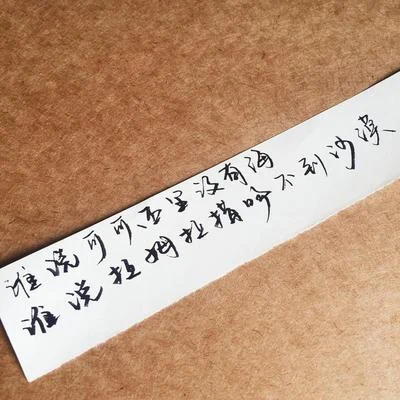 谁说可可西里没有海
谁说拉姆拉措吻不到沙漠